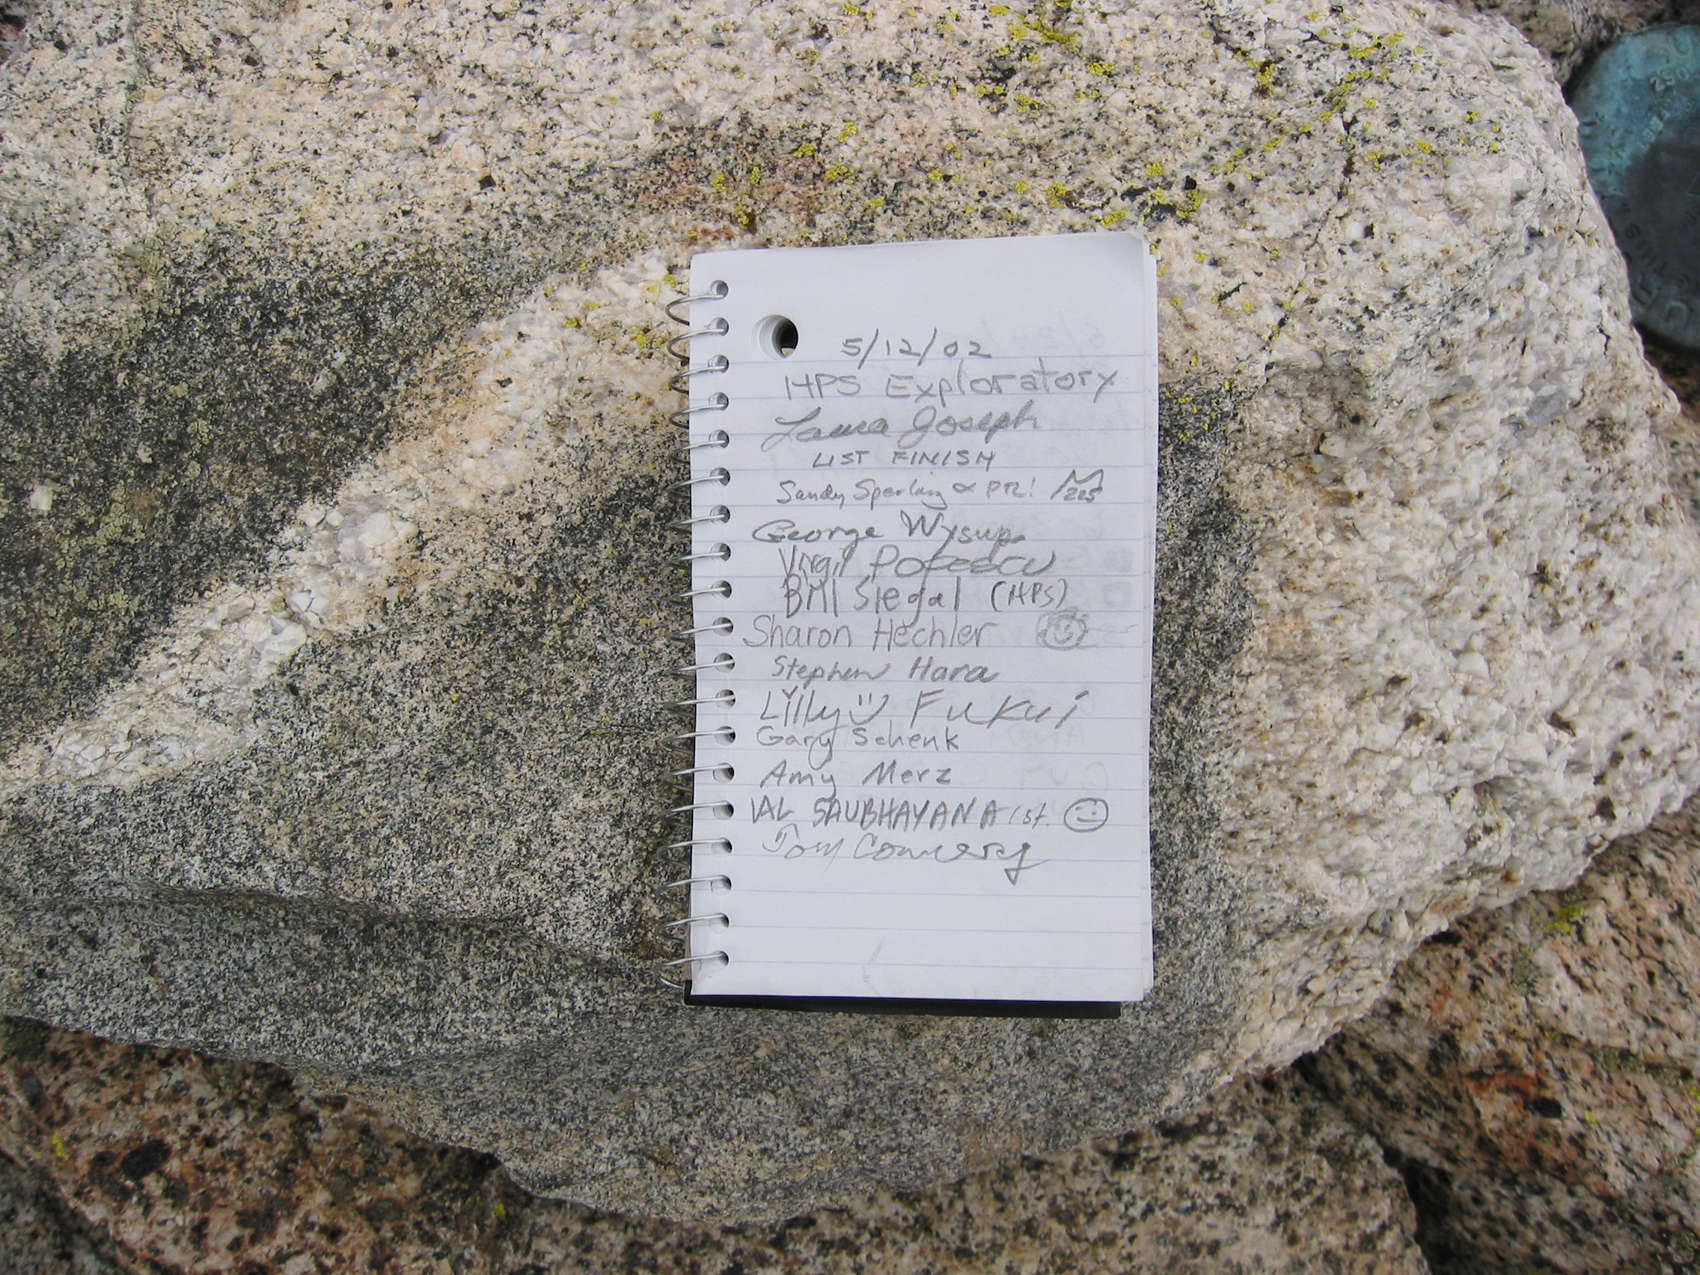 5/12/02
HPS Exploratory
Laura Joseph
LIST FINISH
Sandy Sperling
George Wysup
Virgil Popescu
Bill Siegal (HPS)
Sharon Hechler
Stephen Hara
Lilly Fukui
Gary Schenk
Amy Merz
VAL SAUBHAYANA 1st.
Tom Connery